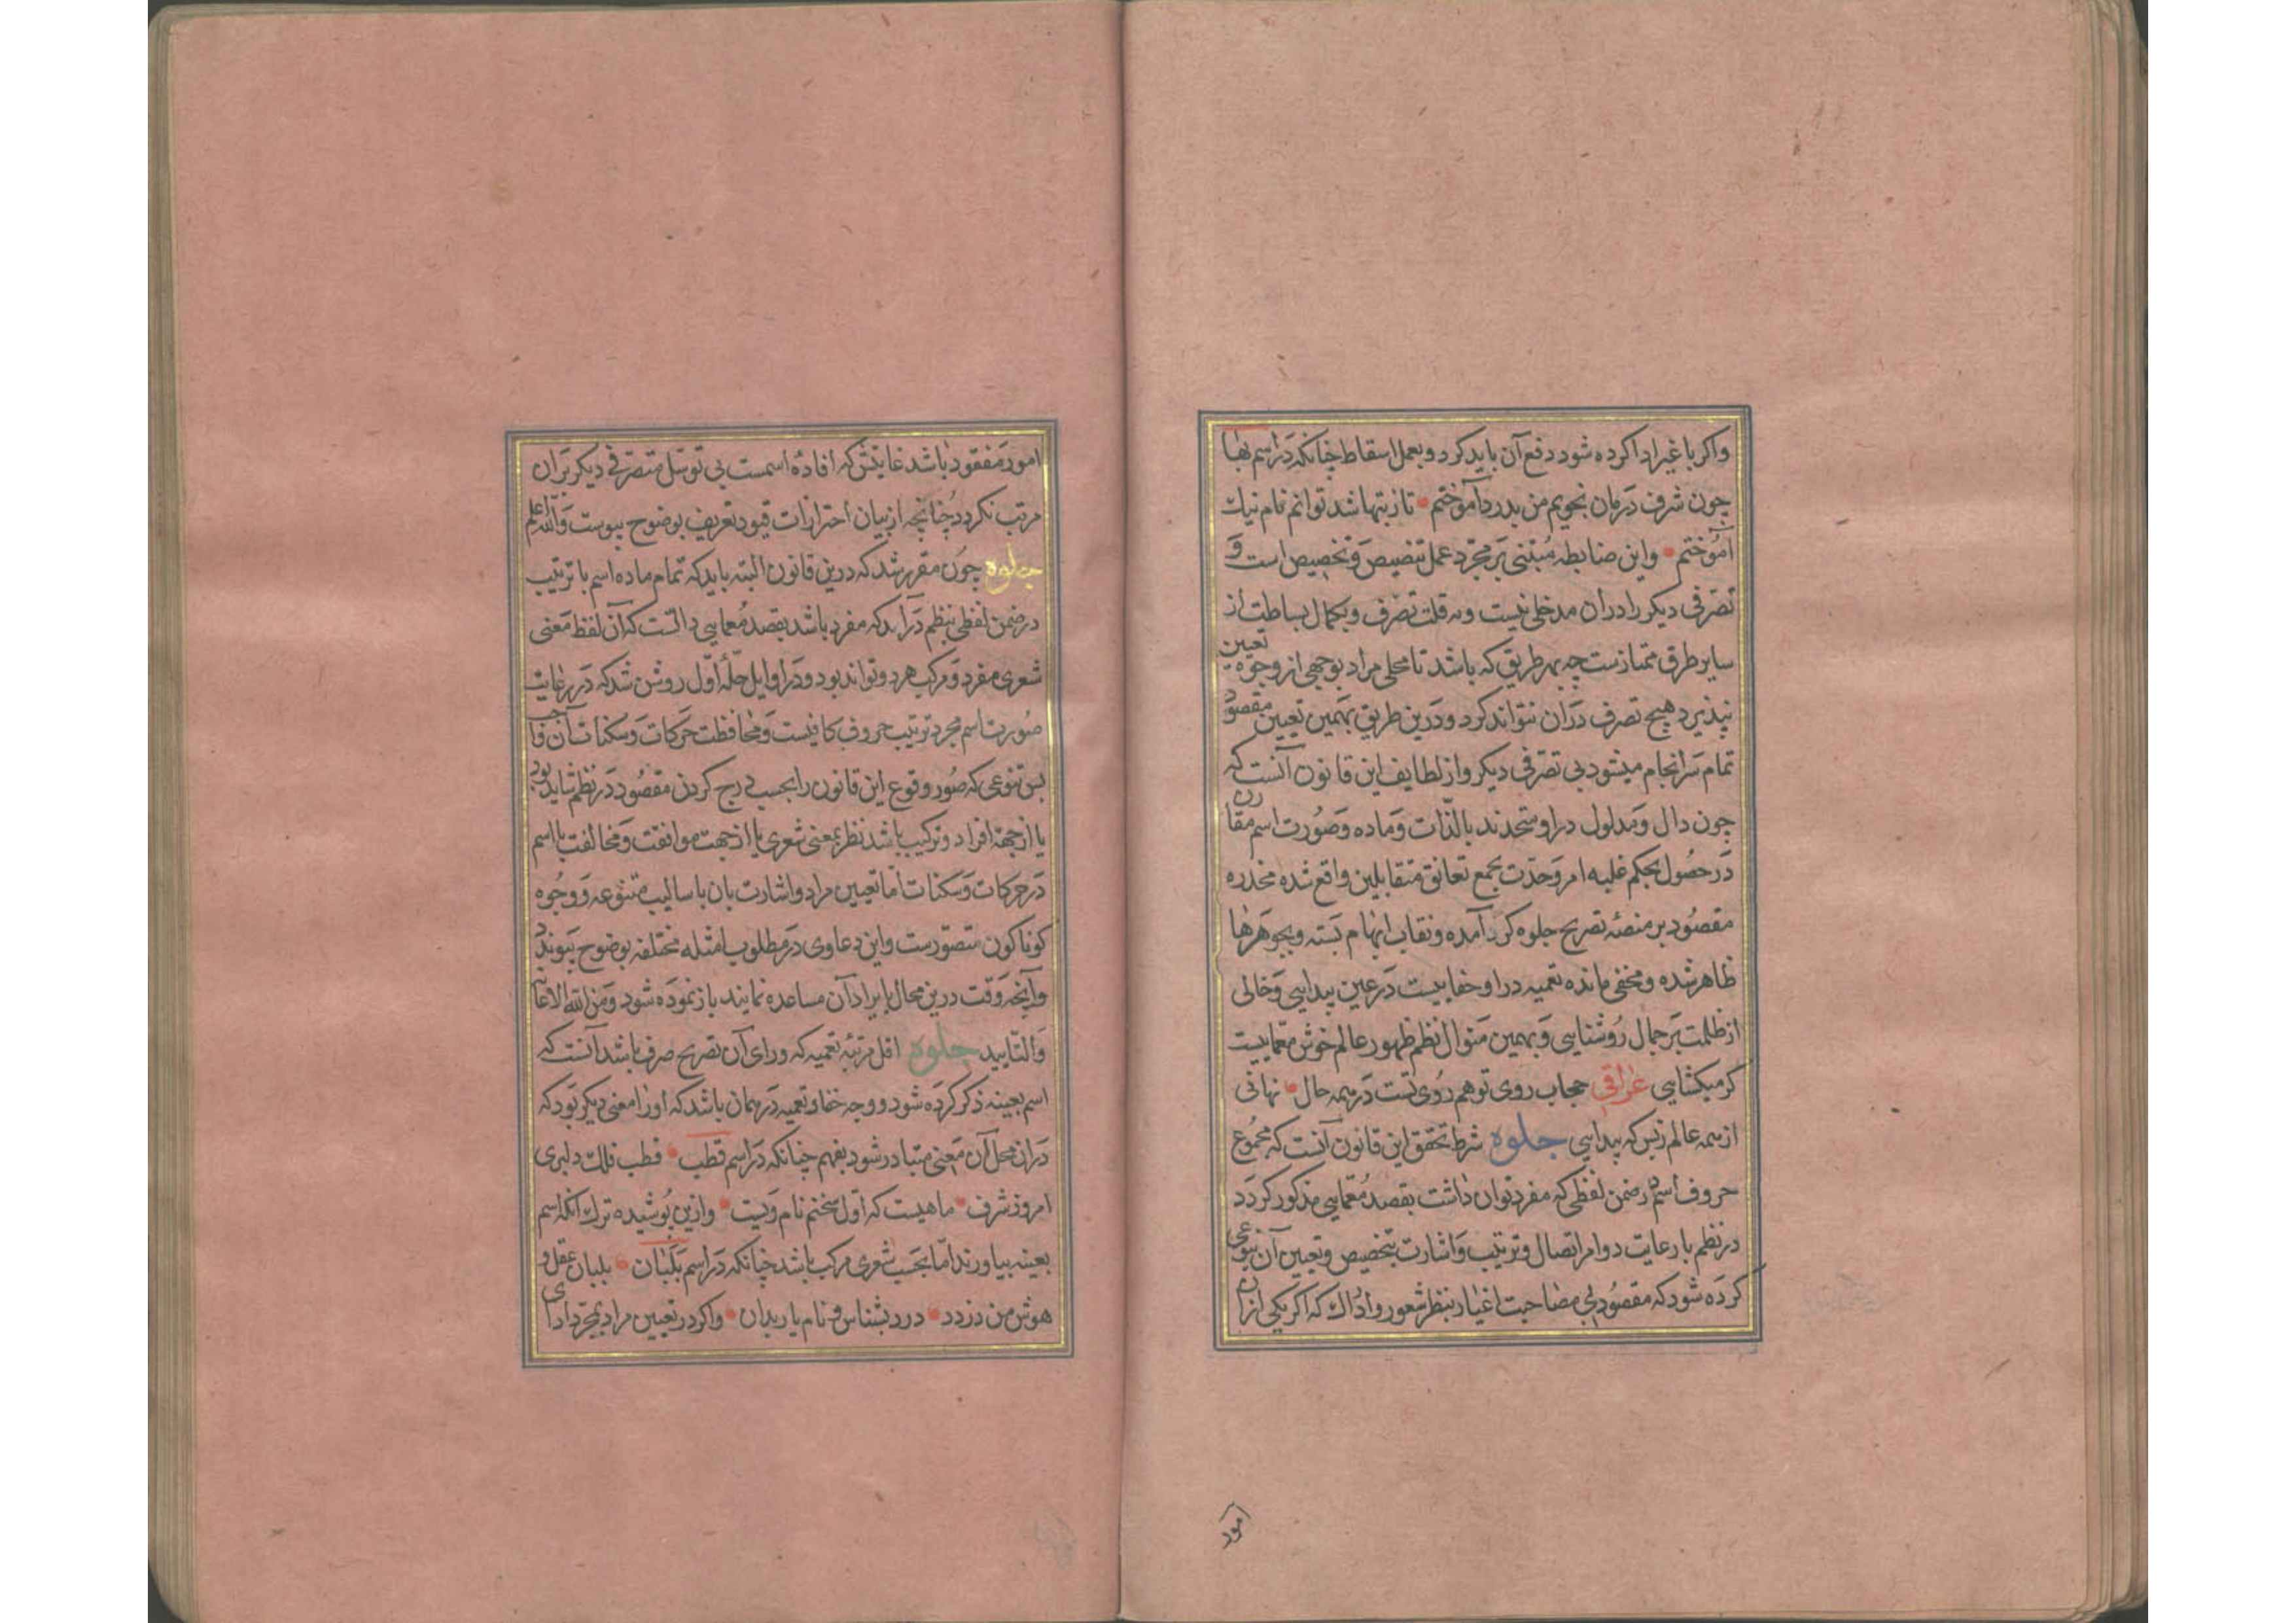 واکر با غیر ادا کرده شود دفع آن باید کرد و بعمل اسقاط چنانکه در اسم بها
چون شرف درمان نجویم من بدرد آموختم • تا ز بتها شد توانم نام نیک
آموختم • واین ضابطه مبتنی بر مجرد عمل تنصیص و تخصیص است و
تصرفی دیکر را دران مدخلی نیست وبه قلت تصرف وبکمال بساطت از
سایر طرق ممتازست چه بهر طریق که باشد تا محلی مراد بوجهی از وجوه تعیین
نپذیرد هیچ تصرف دران نتواند کرد ودرین طریق بهمین تعیین مقصود
تمام سرانجام میشود بی تصرفی دیکر واز لطایف این قانون آنست که
چون دال ومدلول در او متحدند بالذات وماده وصورت اسم مقارن
در حصول بحکم غلبه امر وحدت مجمع تعانق متقابلین واقع شده مخدره
مقصود بر منصه تصریح جلوه کر آمده ونقاب ابهام بسته وبجوهرها
ظاهر شده ومخفی مانده تعمیه در او خفاییست در عین پیدایی وخالی
از ظلمت بر جمال روشنایی وبهمین منوال نظم ظهور عالم خوش معماییست
کر میکشایی عراقی حجاب روی تو هم روی تست در همه حال • نهانی
از همه عالم زبس که پیدایی جلوه شرط تحقق این قانون آنست که مجموع
حروف اسم در ضمن لفظی که مفرد توان داشت بقصد معمایی مذکور کردد
در نظم با رعایت دو امر اتصال وترتیب واشارت بتخصیص وتعیین آن بنوعی
کرده شود که مقصود بی مصاحبت اغیار بنظر شعور وادراک که اکر یکی ازان
امور
امور مفقود باشد غایتش که افاده اسمست بی توسل متصرفی دیکر بران
مرتب نکردد چنانچه از بیان احترازات قیود تعریف بوضوح پیوست والله اعلم
جلوه چون مقرر شد که درین قانون البته باید که تمام ماده اسم با ترتیب
در ضمن لفظی بنظم درآید که مفرد باشد بقصد معمایی دانست که آن لفظ معنی
شعری مفرد ومرکب هر دو تواند بود ودر اوایل حله اول روشن شد که در رعایت
صورت اسم مجرد ترتیب حروف کافیست ومحافظت حرکات وسکنات آن واجب
پس تنوعی که صور وقوع این قانون را بحسب درج کردن مقصود در نظم شاید بود
یا از جهة افراد وترکیب باشد نظر بمعنی شعری یا از جهت موافقت ومخالفت با اسم
در حرکات وسکنات اما تعیین مراد واشارت بان باسالیب متنوعه ووجوه
کوناکون متصورست واین دعاوی در مطلوب بامثله مختلفه بوضوح پیوندد
وآنچه وقت درین محال بایراد آن مساعده نمایند باز نموده شود ومن الله الاعانة
والتایید جلوه اقل مرتبه تعمیه که ورای آن تصریح صرف باشد آنست که
اسم بعینه ذکر کرده شود ووجه خفا وتعمیه در همان باشد که او را معنی دیکر بود که
دران محل آن معنی متبادر شود بفهم چنانکه در اسم قطب • قطب فلک دلبری
امروز شرف • ماهیست که اول سخنم نام ویست • وازین پوشیده ترک آنکه اسم
بعینه بیاورند اما بحسب شعری مرکب باشد چنانکه در اسم بلبان • بلبان عقل و
هوش من دزدد • درد بشناس ونام یار بدان • واکر در تعیین مراد بمجرد ادای